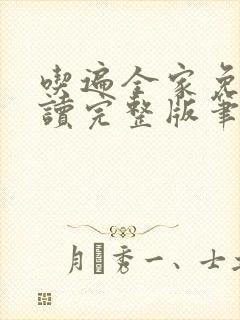 喫遍全家免
讀完整版筆
月 秀一、士